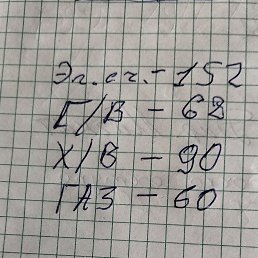 Эл.сч. - 152
Г/В - 62
Х/В - 90
ГАЗ - 60